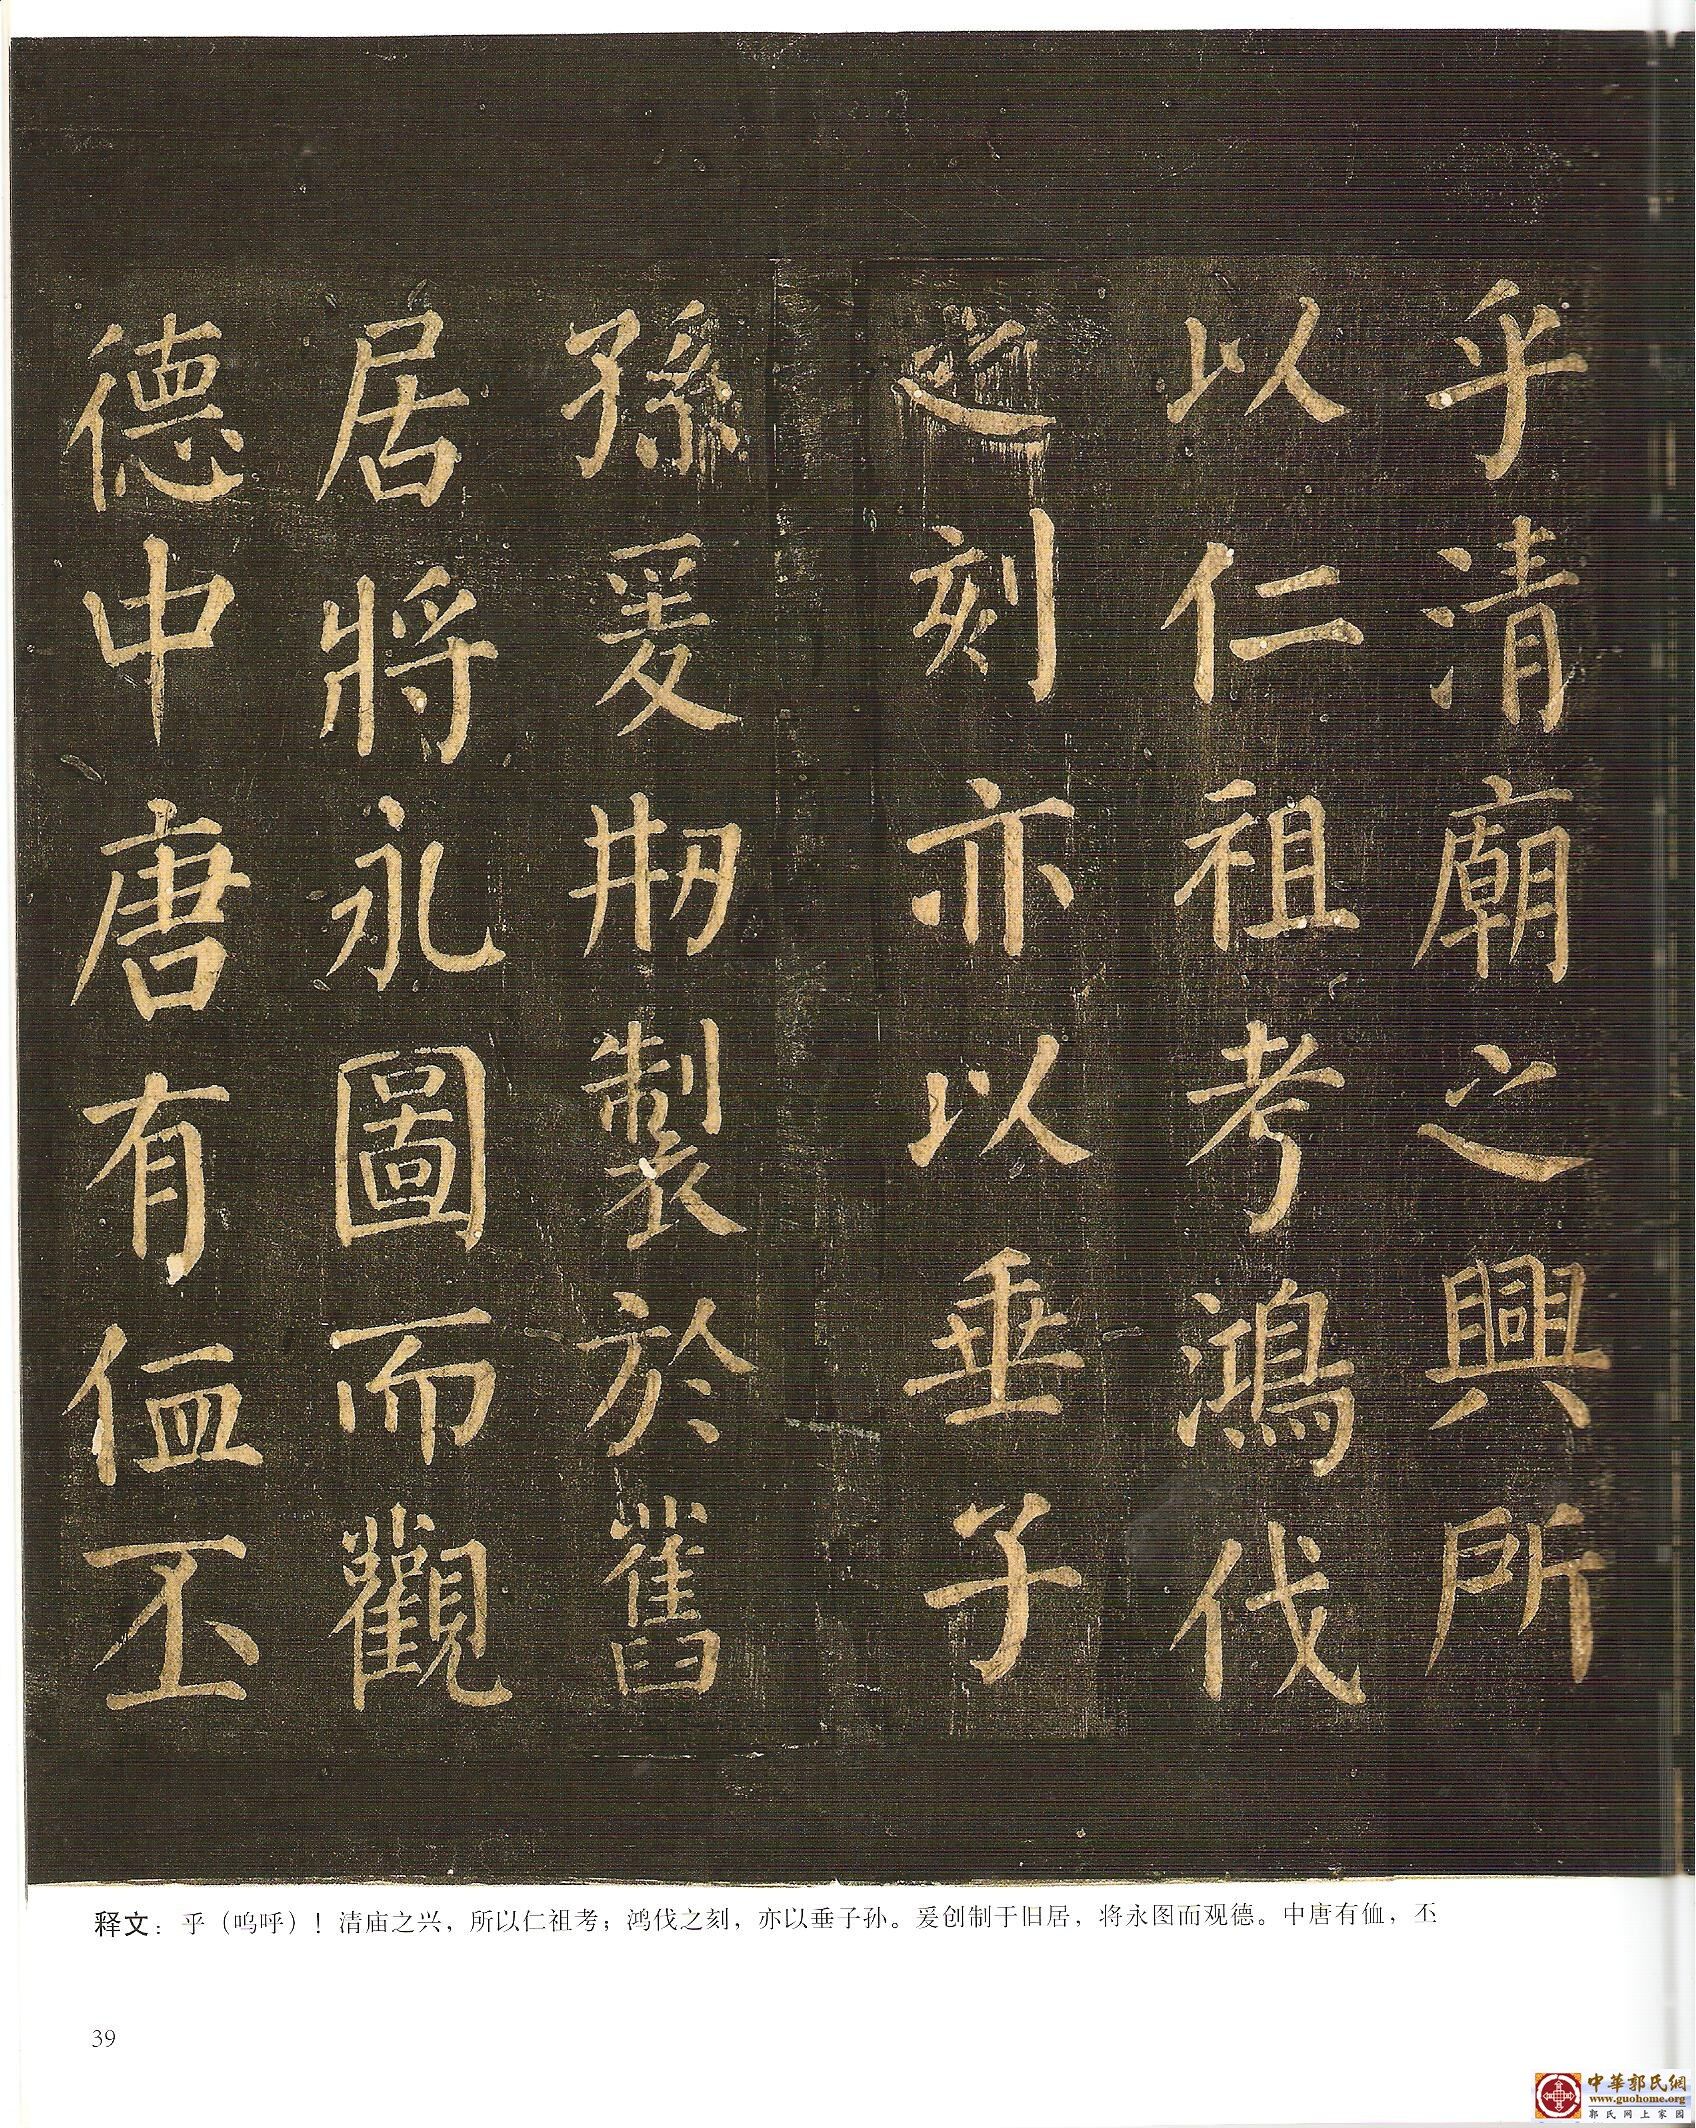 乎清廟之興所
以仁祖考鴻伐
之刻亦以垂子
孫爰刱製於舊
居將永圖而觀
德中唐有侐丕
释文：乎（呜呼）！清庙之兴，所以仁祖考；鸿伐之刻，亦以垂子孙。爰创制于旧居，将永图而观德。中唐有侐，丕
39
中華郭氏網
www.guohome.org
郭氏网上家园